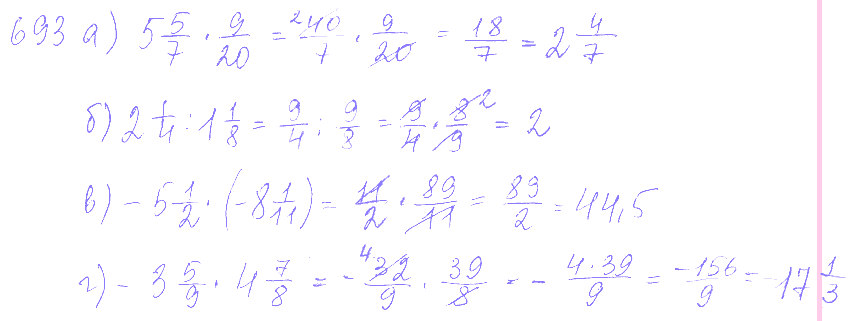 693 а) 5 5/7 · 9/20 = ²40/7 · 9/20 = 18/7 = 2 4/7
б) 2 1/4 : 1 1/8 = 9/4 : 9/8 = 9/4 · 8²/9 = 2
в) - 5 1/2 · (-8 1/11) = 11/2 · 89/11 = 89/2 = 44,5
г) - 3 5/9 · 4 7/8 = - ⁴32/9 · 39/8 = - 4·39/9 = -156/9 = -17 1/3